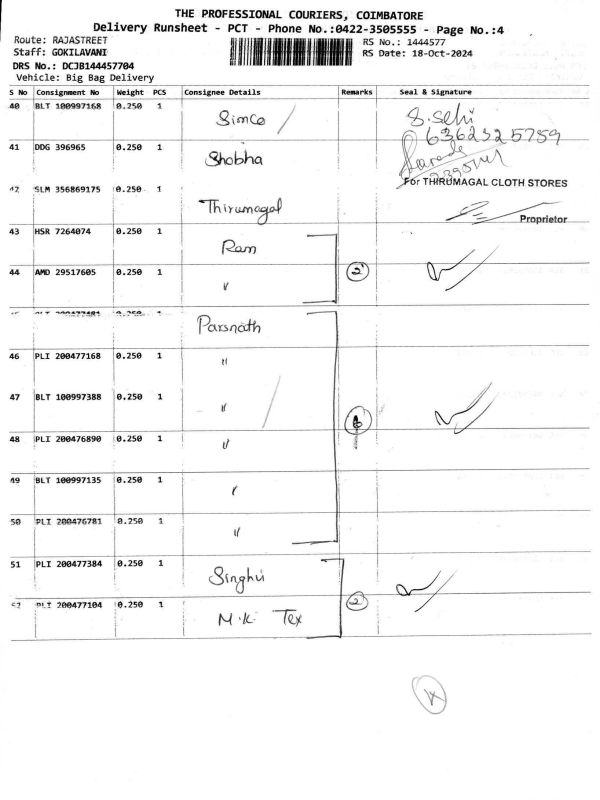 THE PROFESSIONAL COURIERS, COIMBATORE
Delivery Runsheet - PCT - Phone No.:0422-3505555 - Page No.:4
Route: RAJASTREET RS No.: 1444577
Staff: GOKILAVANI RS Date: 18-Oct-2024
DRS No.: DCJB144457704
Vehicle: Big Bag Delivery
S No Consignment No Weight PCS Consignee Details Remarks Seal & Signature
40 BLT 100997168 0.250 1 Simco S. Selvi
6362325759
41 DDG 396965 0.250 1 Shobha
42 SLM 356869175 0.250 1 Thirumagal For THIRUMAGAL CLOTH STORES
Proprietor
43 HSR 7264074 0.250 1 Ram
44 AMD 29517605 0.250 1 " 2
0.250 1 Parsnath
46 PLI 200477168 0.250 1 "
47 BLT 100997388 0.250 1 " 6
48 PLI 200476890 0.250 1 "
49 BLT 100997135 0.250 1 "
50 PLI 200476781 0.250 1 "
51 PLI 200477384 0.250 1 Singhvi
52 PLI 200477104 0.250 1 M.K. Tex 2